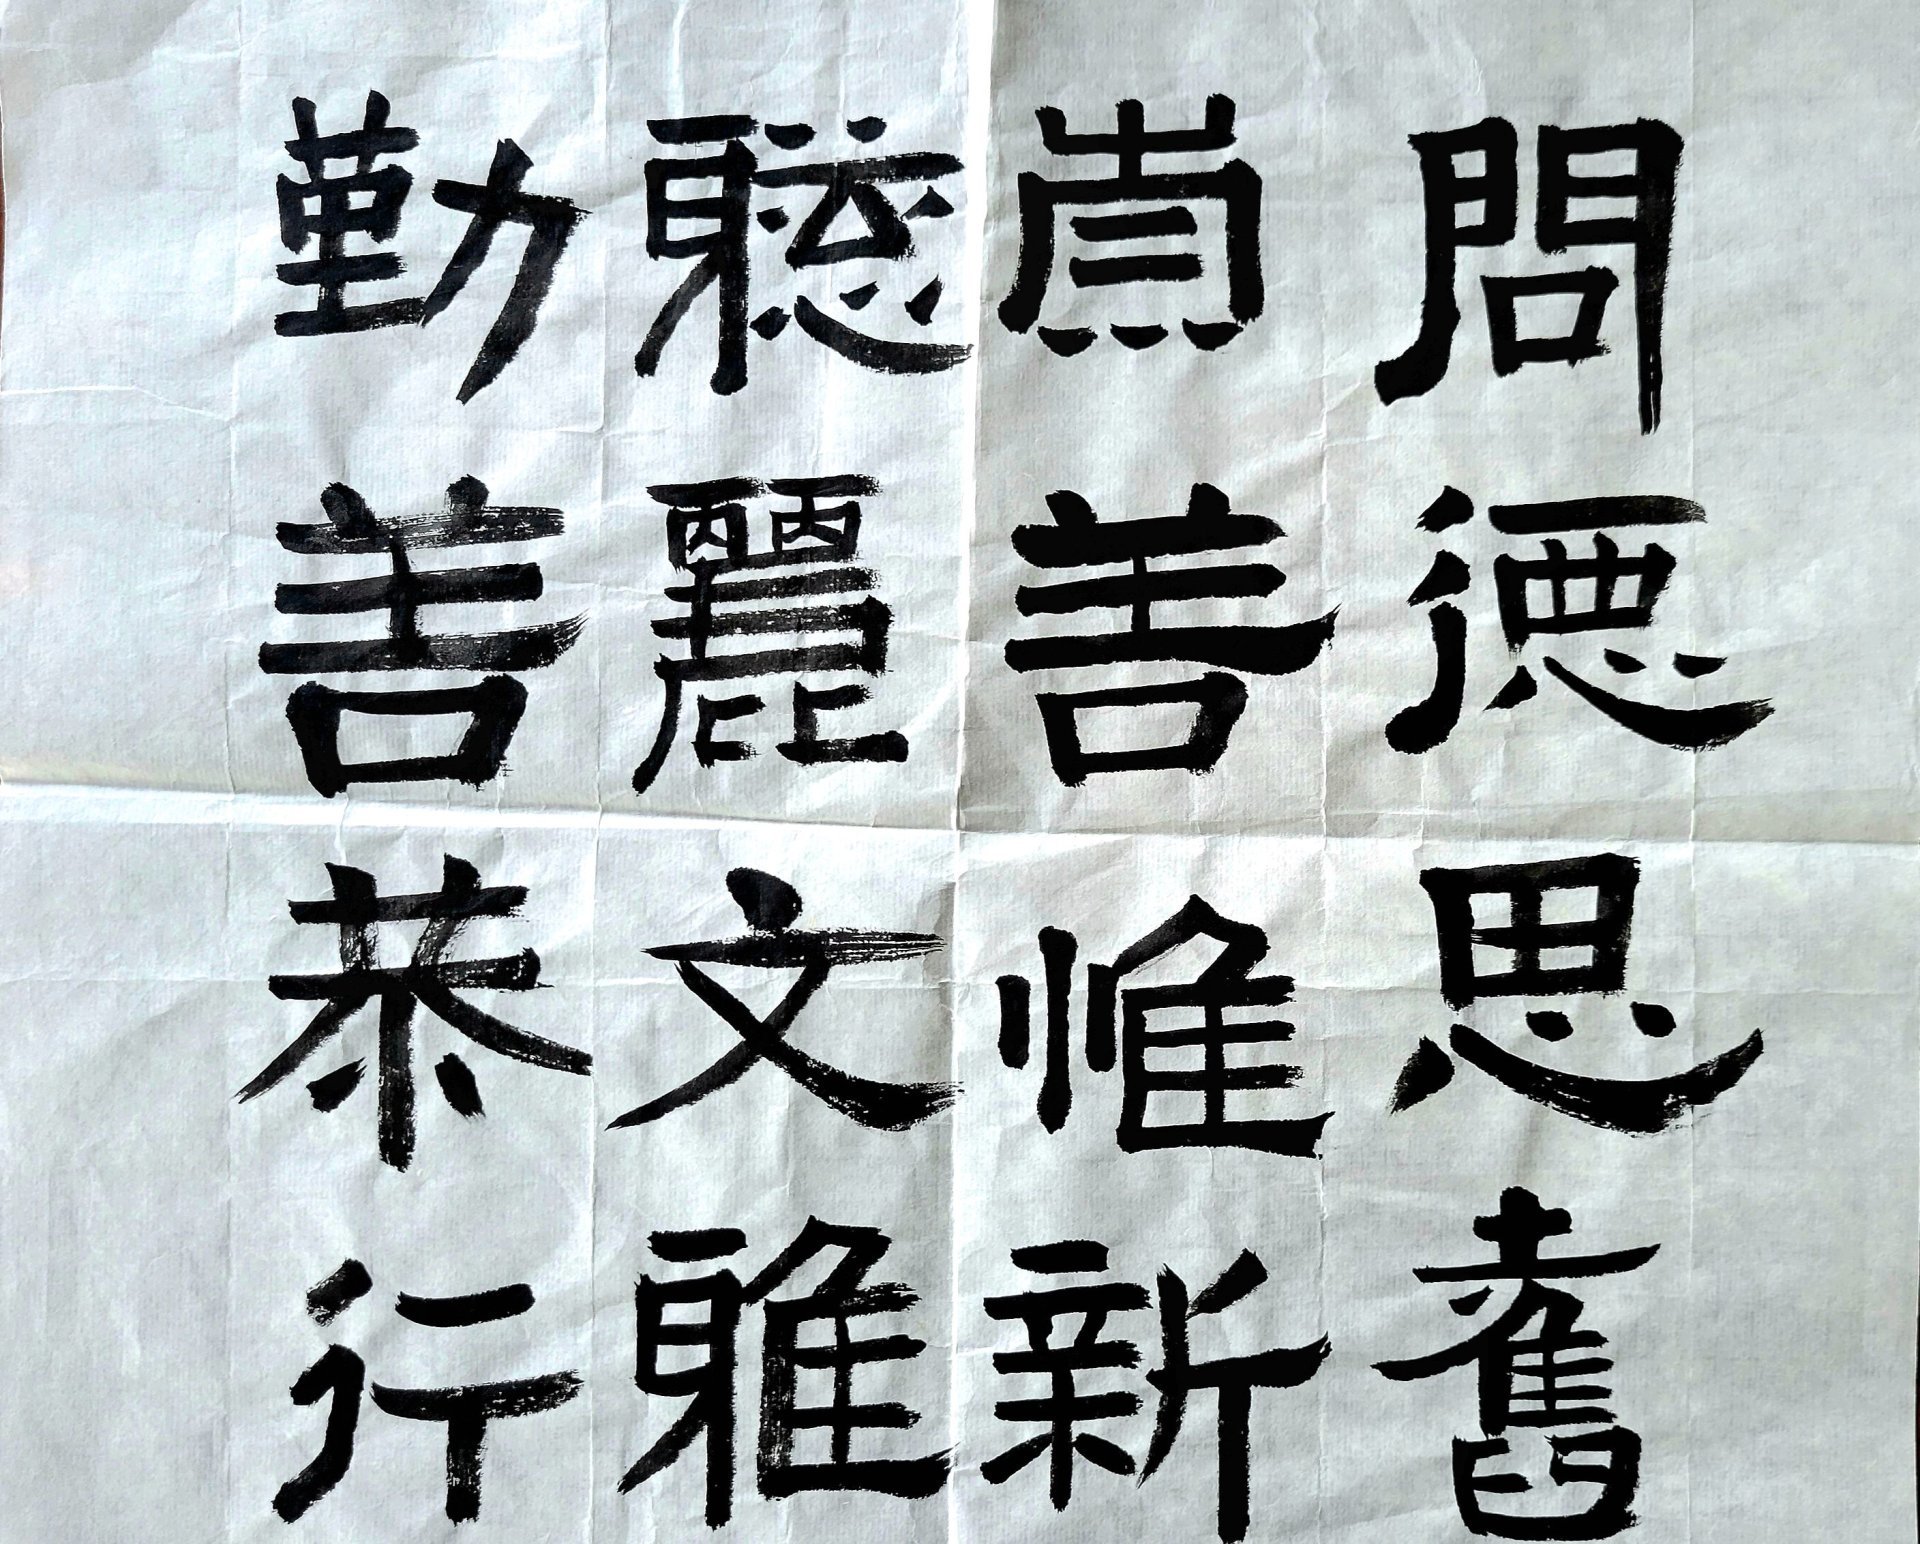 問德思舊
崇善惟新
聰麗文雅
勤善恭行